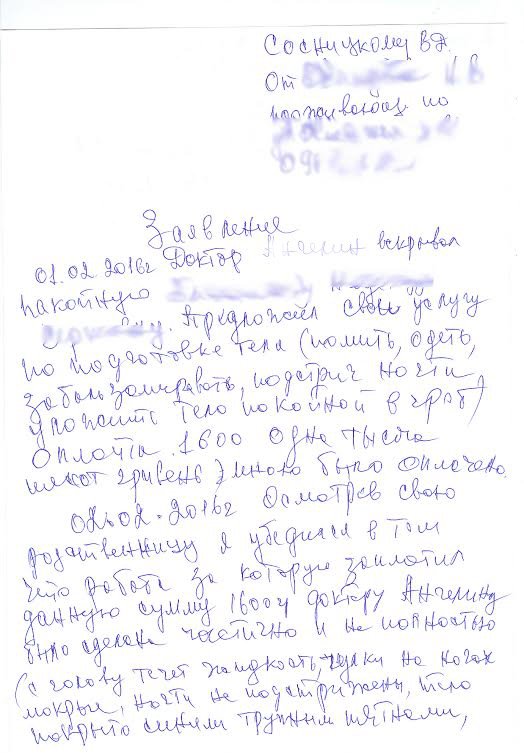 Сосницкому В.А.
От
проживающ по
09
Заявление
01.02.2016г Доктор Ангелин вскрывал
пакойную
Предложил свою услугу
по подготовке тела (помить, одеть,
забальзамировать, подстрич ногти
уложить тело покойной в гроб)
Оплата 1600 одна тысяча
шесот гривень) мною было оплачено.
02.02.2016г Осмотрев свою
родственницу я убедился в том
что работа за которую заплатил
данную сумму 1600 доктору Ангелину
было сделана частично и не полностью
(с головы течет жидкость, чулки на ногах
мокрые, ногти не подстрижены, тело
покрыто синими трупными пятнами,